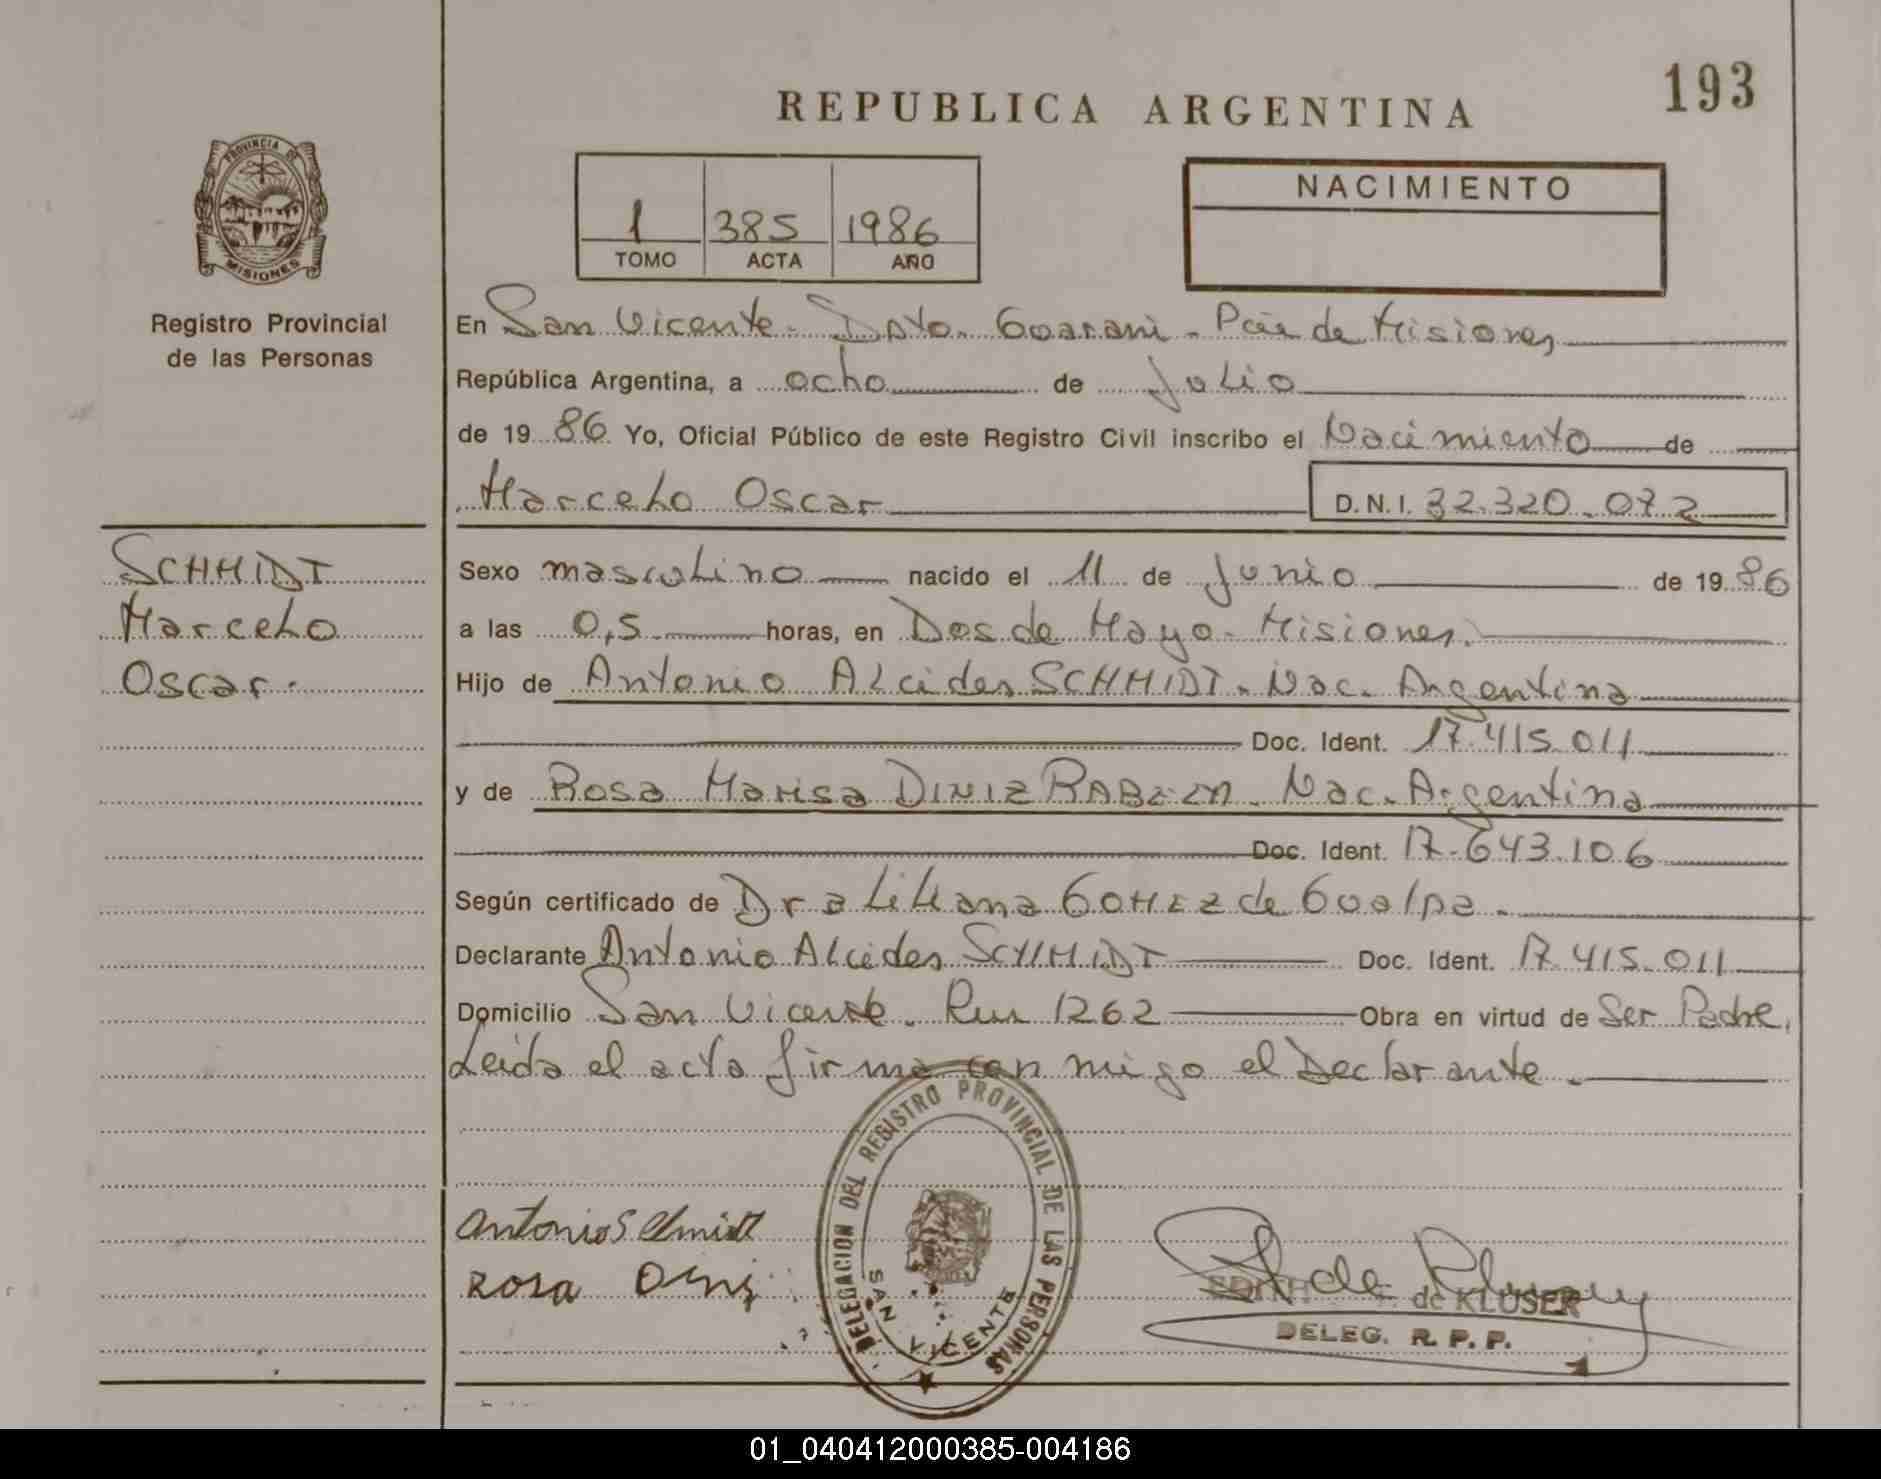 193
REPUBLICA ARGENTINA
PROVINCIA DE
MISIONES
Registro Provincial
de las Personas
1 385 1986
TOMO ACTA AÑO
NACIMIENTO
En San Vicente - Dpto. Guarani - Pcia de Misiones
República Argentina, a ocho de Julio
de 1986 Yo, Oficial Público de este Registro Civil inscribo el Nacimiento de
Marcelo Oscar D.N.I. 32.320.072
SCHMIDT
Marcelo
Oscar.
Sexo masculino nacido el 11 de Junio de 1986
a las 0,5 horas, en Dos de Mayo - Misiones.
Hijo de Antonio Alcides SCHMIDT. Nac. Argentina
Doc. Ident. 17.415.011
y de Rosa Marisa DINIZ Nac. Argentina
Doc. Ident. 17.643.106
Según certificado de Dra Liliana GOMEZ de Gualpa.
Declarante Antonio Alcides SCHMIDT Doc. Ident. 17.415.011
Domicilio San Vicente. 1262 Obra en virtud de Ser Padre,
Leida el acta firma con migo el Declarante.
Antonio Schmidt
Rosa
DELEGACION DEL REGISTRO PROVINCIAL DE LAS PERSONAS
SAN VICENTE
de KLUSER
DELEG. R. P. P.
01_040412000385-004186